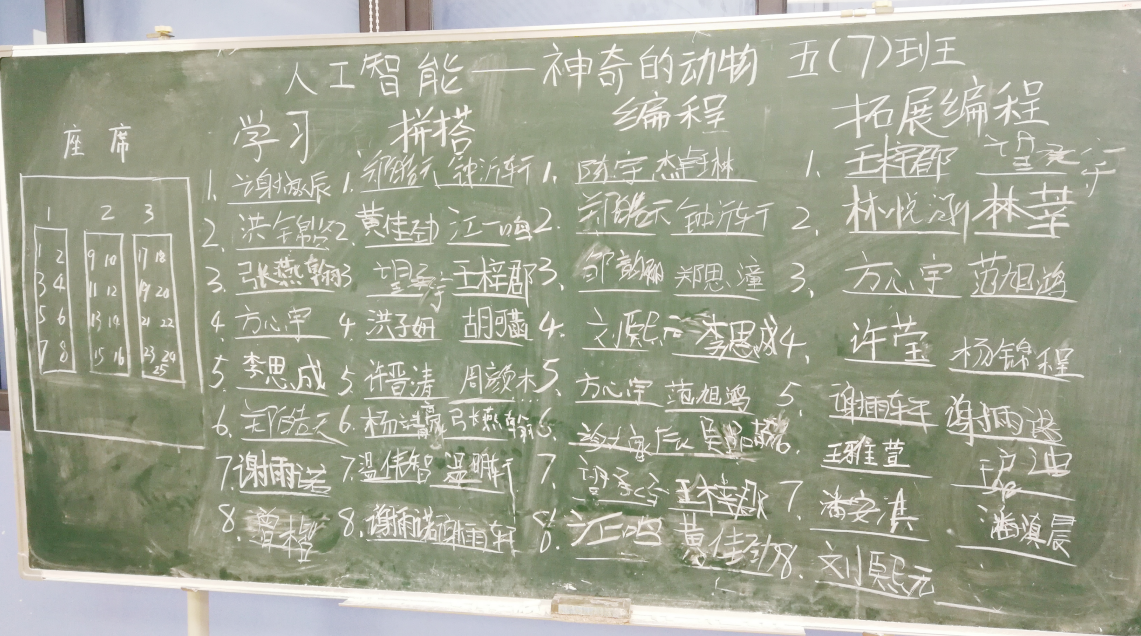 人工智能——神奇的动物 五(7)班
座席 学习 拼搭 编程 拓展编程
1 2 3
1 2 9 10 17 18
3 4 11 12 19 20
5 6 13 14 21 22
7 8 15 16 23 24
25
1. 谢振辰 1. 郑皓天 钟沂轩 1. 陈宇杰 林 1. 王梓郡
2. 洪锦 2. 黄佳劲 江一鸣 2. 郑皓天 钟沂轩 2. 林悦涵 林莘
3. 张燕翰 3. 王梓郡 3. 邹 郑思潼 3. 方心宇 范旭鸿
4. 方心宇 4. 洪子妍 胡可菡 4. 刘熙元 李思成 4. 许莹 杨锦程
5. 李思成 5. 许晋清 周颜木 5. 方心宇 范旭鸿 5. 谢雨轩 谢雨诺
6. 郑皓天 6. 杨 张燕翰 6. 6. 王雅萱
7. 谢雨诺 7. 温伟智 温明轩 7. 王梓郡 7. 潘安淇 潘滇晨
8. 曾 8. 谢雨诺 谢雨轩 8. 江鸣 黄佳劲 8. 刘熙元